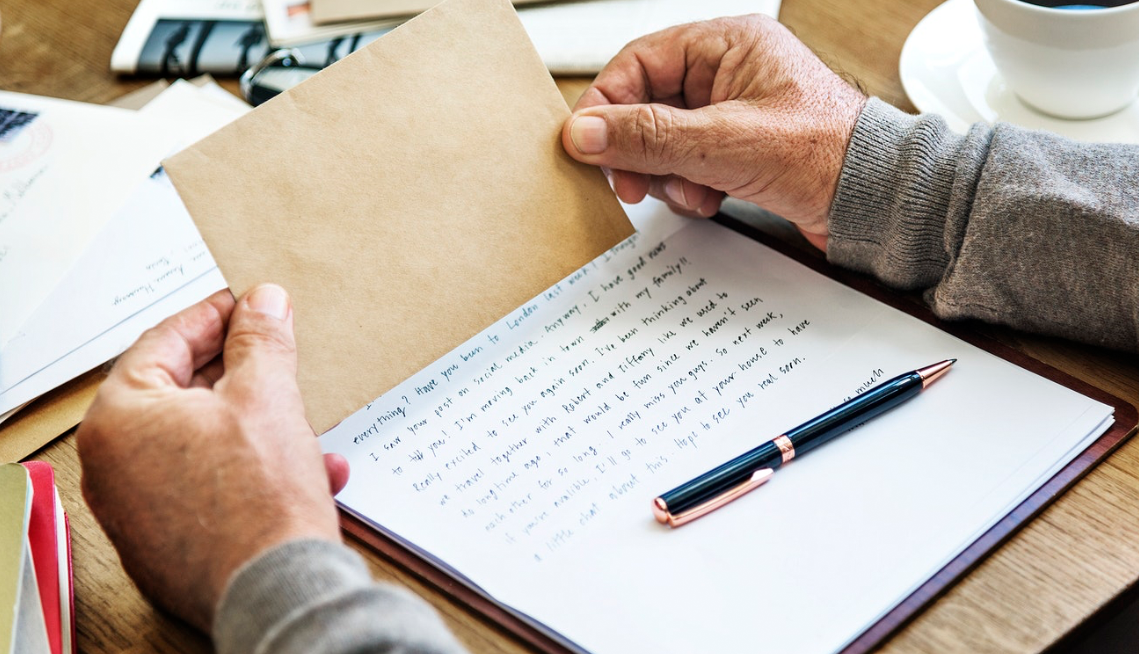 everything? Have you been to London last week? I
I saw your post on social media. Anyway, I have good news
to you! I'm moving back in town with my family!!
Really excited to see you again soon. I've been thinking about
we travel together with Robert and Tiffany like we used to
do longtime ago, that would be fun since we haven't seen
each other for so long. I really miss you guys. So next week,
if you're avalible, I'll go to see you at your house to have
a little chat about this. Hope to see you real soon.
much